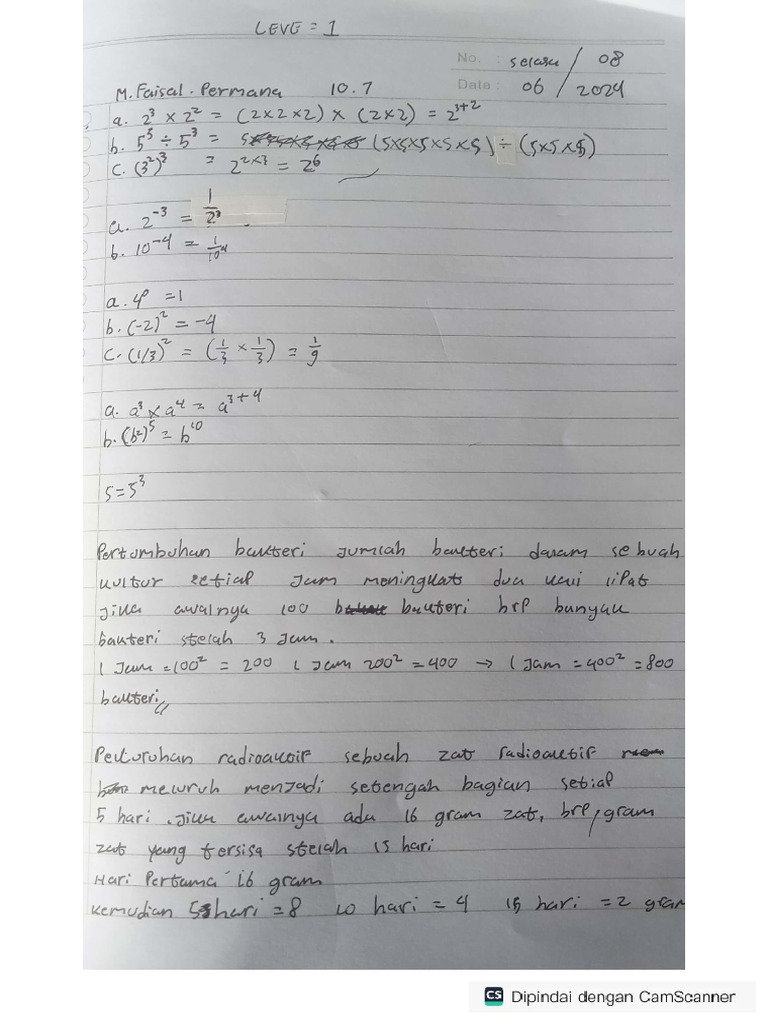 LEVE = 1
No. : selasa / 08
Date : 06 / 2024
M. Faisal. Permana 10.7
a. 2³ × 2² = (2×2×2) × (2×2) = 2³⁺²
b. 5⁵ ÷ 5³ = (5×5×5×5×5) ÷ (5×5×5)
c. (3²)³ = 2²ˣ³ = 2⁶
a. 2⁻³ = 1/2³
b. 10⁻⁴ = 1/10⁴
a. 4⁰ = 1
b. (-2)² = -4
c. (1/3)² = (1/3 × 1/3) = 1/9
a. a³ × a⁴ = a³⁺⁴
b. (b²)⁵ = b¹⁰
5 = 5³
Pertumbuhan bakteri jumlah bakteri dalam sebuah
kultur setiap jam meningkat dua kali lipat
jika awalnya 100 bakteri brp banyak
bakteri stelah 3 jam.
1 Jam = 100² = 200 1 Jam 200² = 400 → 1 Jam = 400² = 800
bakteri //
Peluruhan radioaktif sebuah zat radioaktif
meluruh menjadi setengah bagian setiap
5 hari. jika awalnya ada 16 gram zat, brp, gram
zat yang tersisa stelah 15 hari
Hari Pertama 16 gram
kemudian 5 hari = 8 10 hari = 4 15 hari = 2 gram
CS Dipindai dengan CamScanner